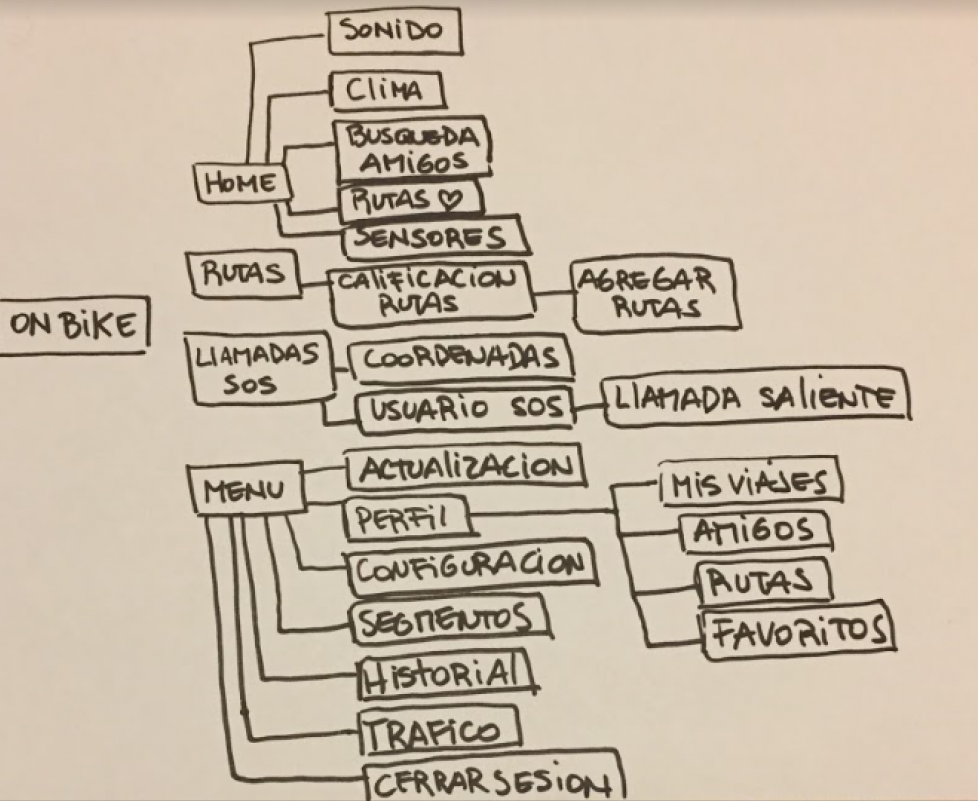 SONIDO
CLIMA
BUSQUEDA
AMIGOS
HOME
RUTAS ♡
SENSORES
RUTAS
CALIFICACION
RUTAS
AGREGAR
RUTAS
ON BIKE
LLAMADAS
SOS
COORDENADAS
USUARIO SOS
LLAMADA SALIENTE
MENU
ACTUALIZACION
PERFIL
MIS VIAJES
AMIGOS
RUTAS
FAVORITOS
CONFIGURACION
SEGMENTOS
HISTORIAL
TRAFICO
CERRAR SESION